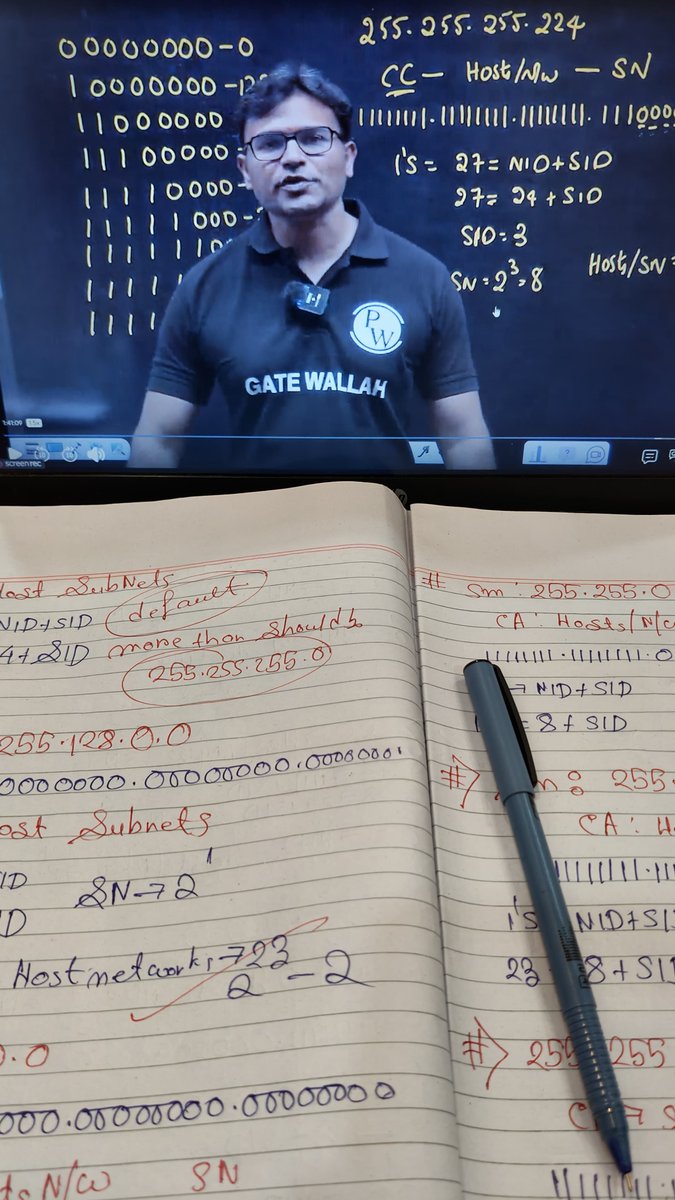 00000000-0
10000000-12
11000000
11100000-
11110000-
11111000-
255.255.255.224
CC- Host/N/w - SN
11111111.11111111.11111111.111000
1's = 27=NID+SID
27= 24+SID
SID=3
SN=2³=8
Host/SN=
PW
GATE WALLAH
1:41:09
screen rec
Host SubNets
NID+SID default
4+SID more than should b
255.255.255.0
255.128.0.0
0000000.00000000.00000000
ost Subnets
ID
SN→2¹
D
Host networks→2²³-2
0.0
000.00000000.00000000
ts N/W SN
# Sm: 255.255.0
CA: Hosts/N/W
11111111.11111111.0
→ NID+SID
= 8+SID
#⟩ m: 255.
CA: H
1111111.111
1's NID+SI
23 8+SID
#⟩ 255 255